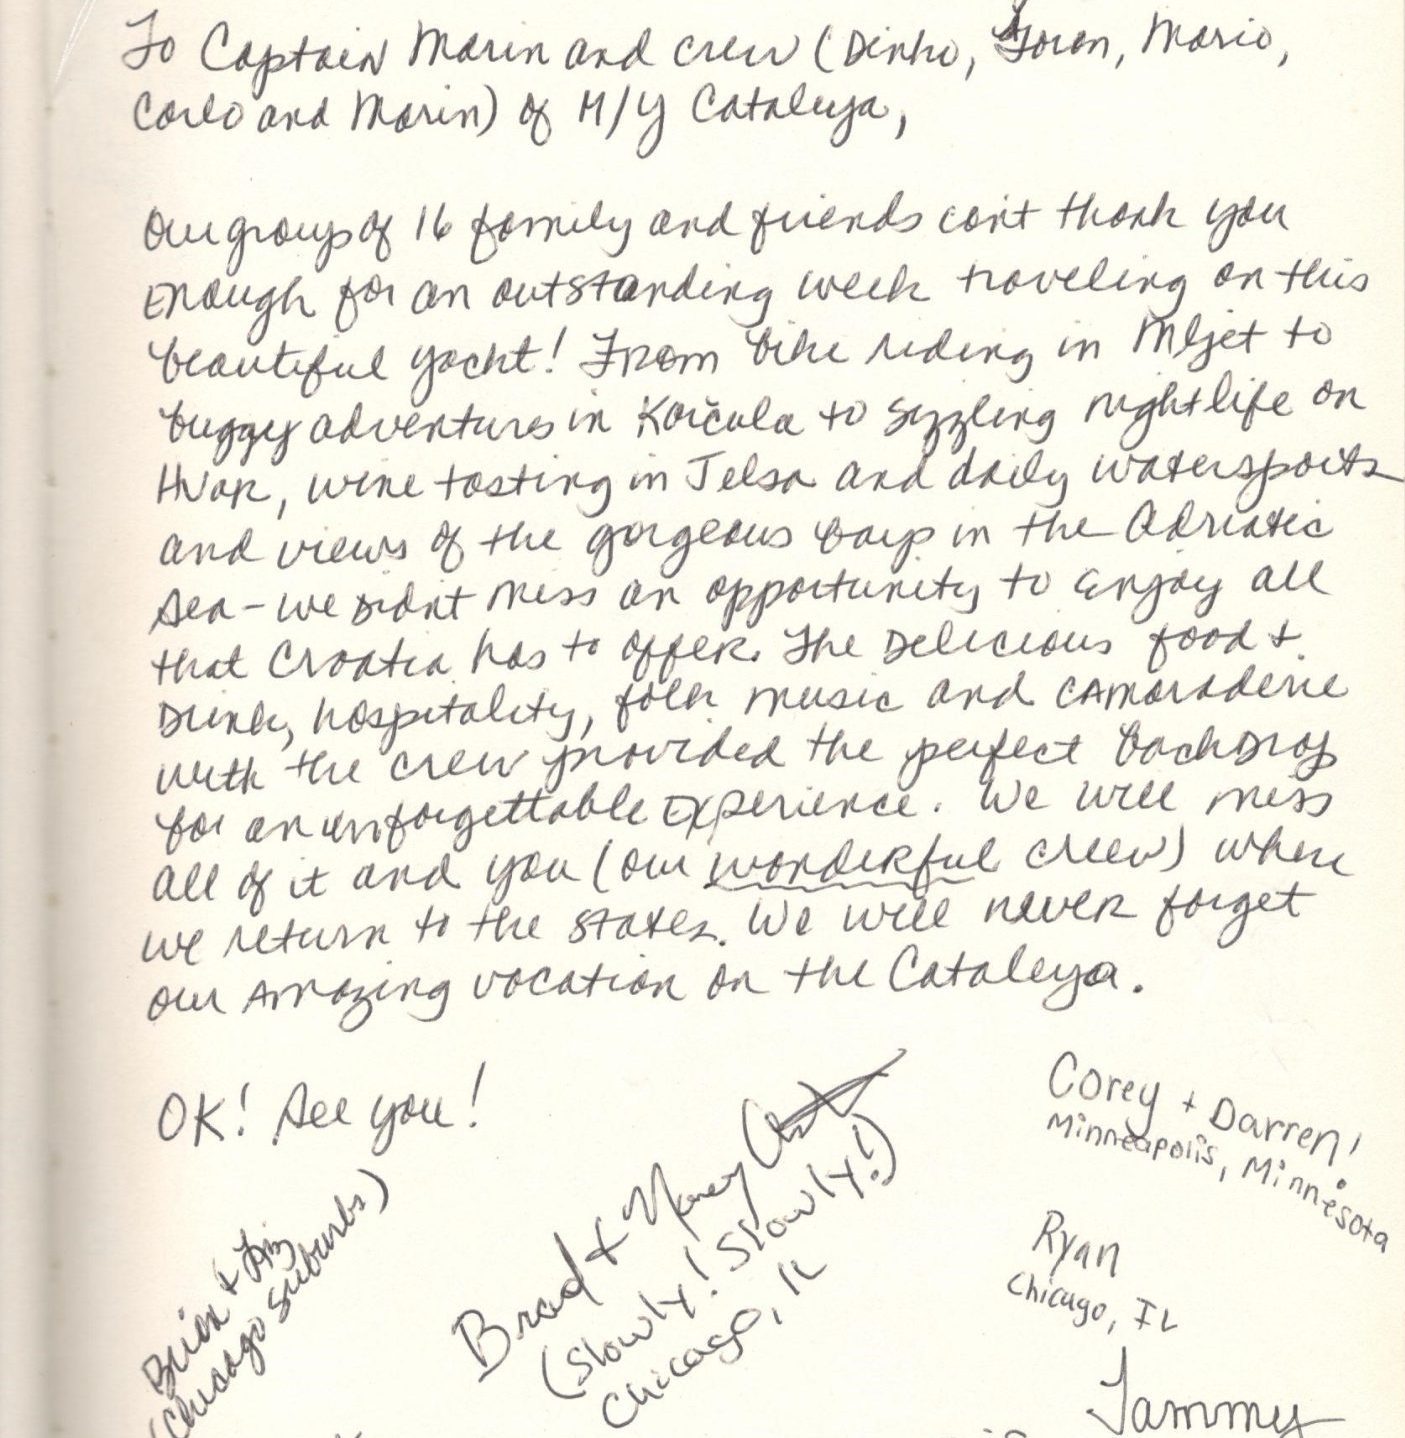 To Captain Marin and crew (Dinho, Goran, Mario,
Carlo and Marin) of M/Y Cataleya,
Our group of 16 family and friends can't thank you
enough for an outstanding week traveling on this
beautiful yacht! From bike riding in Mljet to
buggy adventures in Korčula to sizzling nightlife on
Hvar, wine tasting in Jelsa and daily watersports
and views of the gorgeous bays in the Adriatic
Sea - we didn't miss an opportunity to enjoy all
that Croatia has to offer. The delicious food +
drink, hospitality, folk music and camaraderie
with the crew provided the perfect backdrop
for an unforgettable experience. We will miss
all of it and you (our wonderful crew) when
we return to the states. We will never forget
our amazing vacation on the Cataleya.
OK! See you!
Corey + Darren!
Minneapolis, Minnesota
Brad + Nancy
(Slowly! Slowly!)
Chicago, IL
Brian +
(Chicago suburbs)
Ryan
Chicago, IL
Tammy